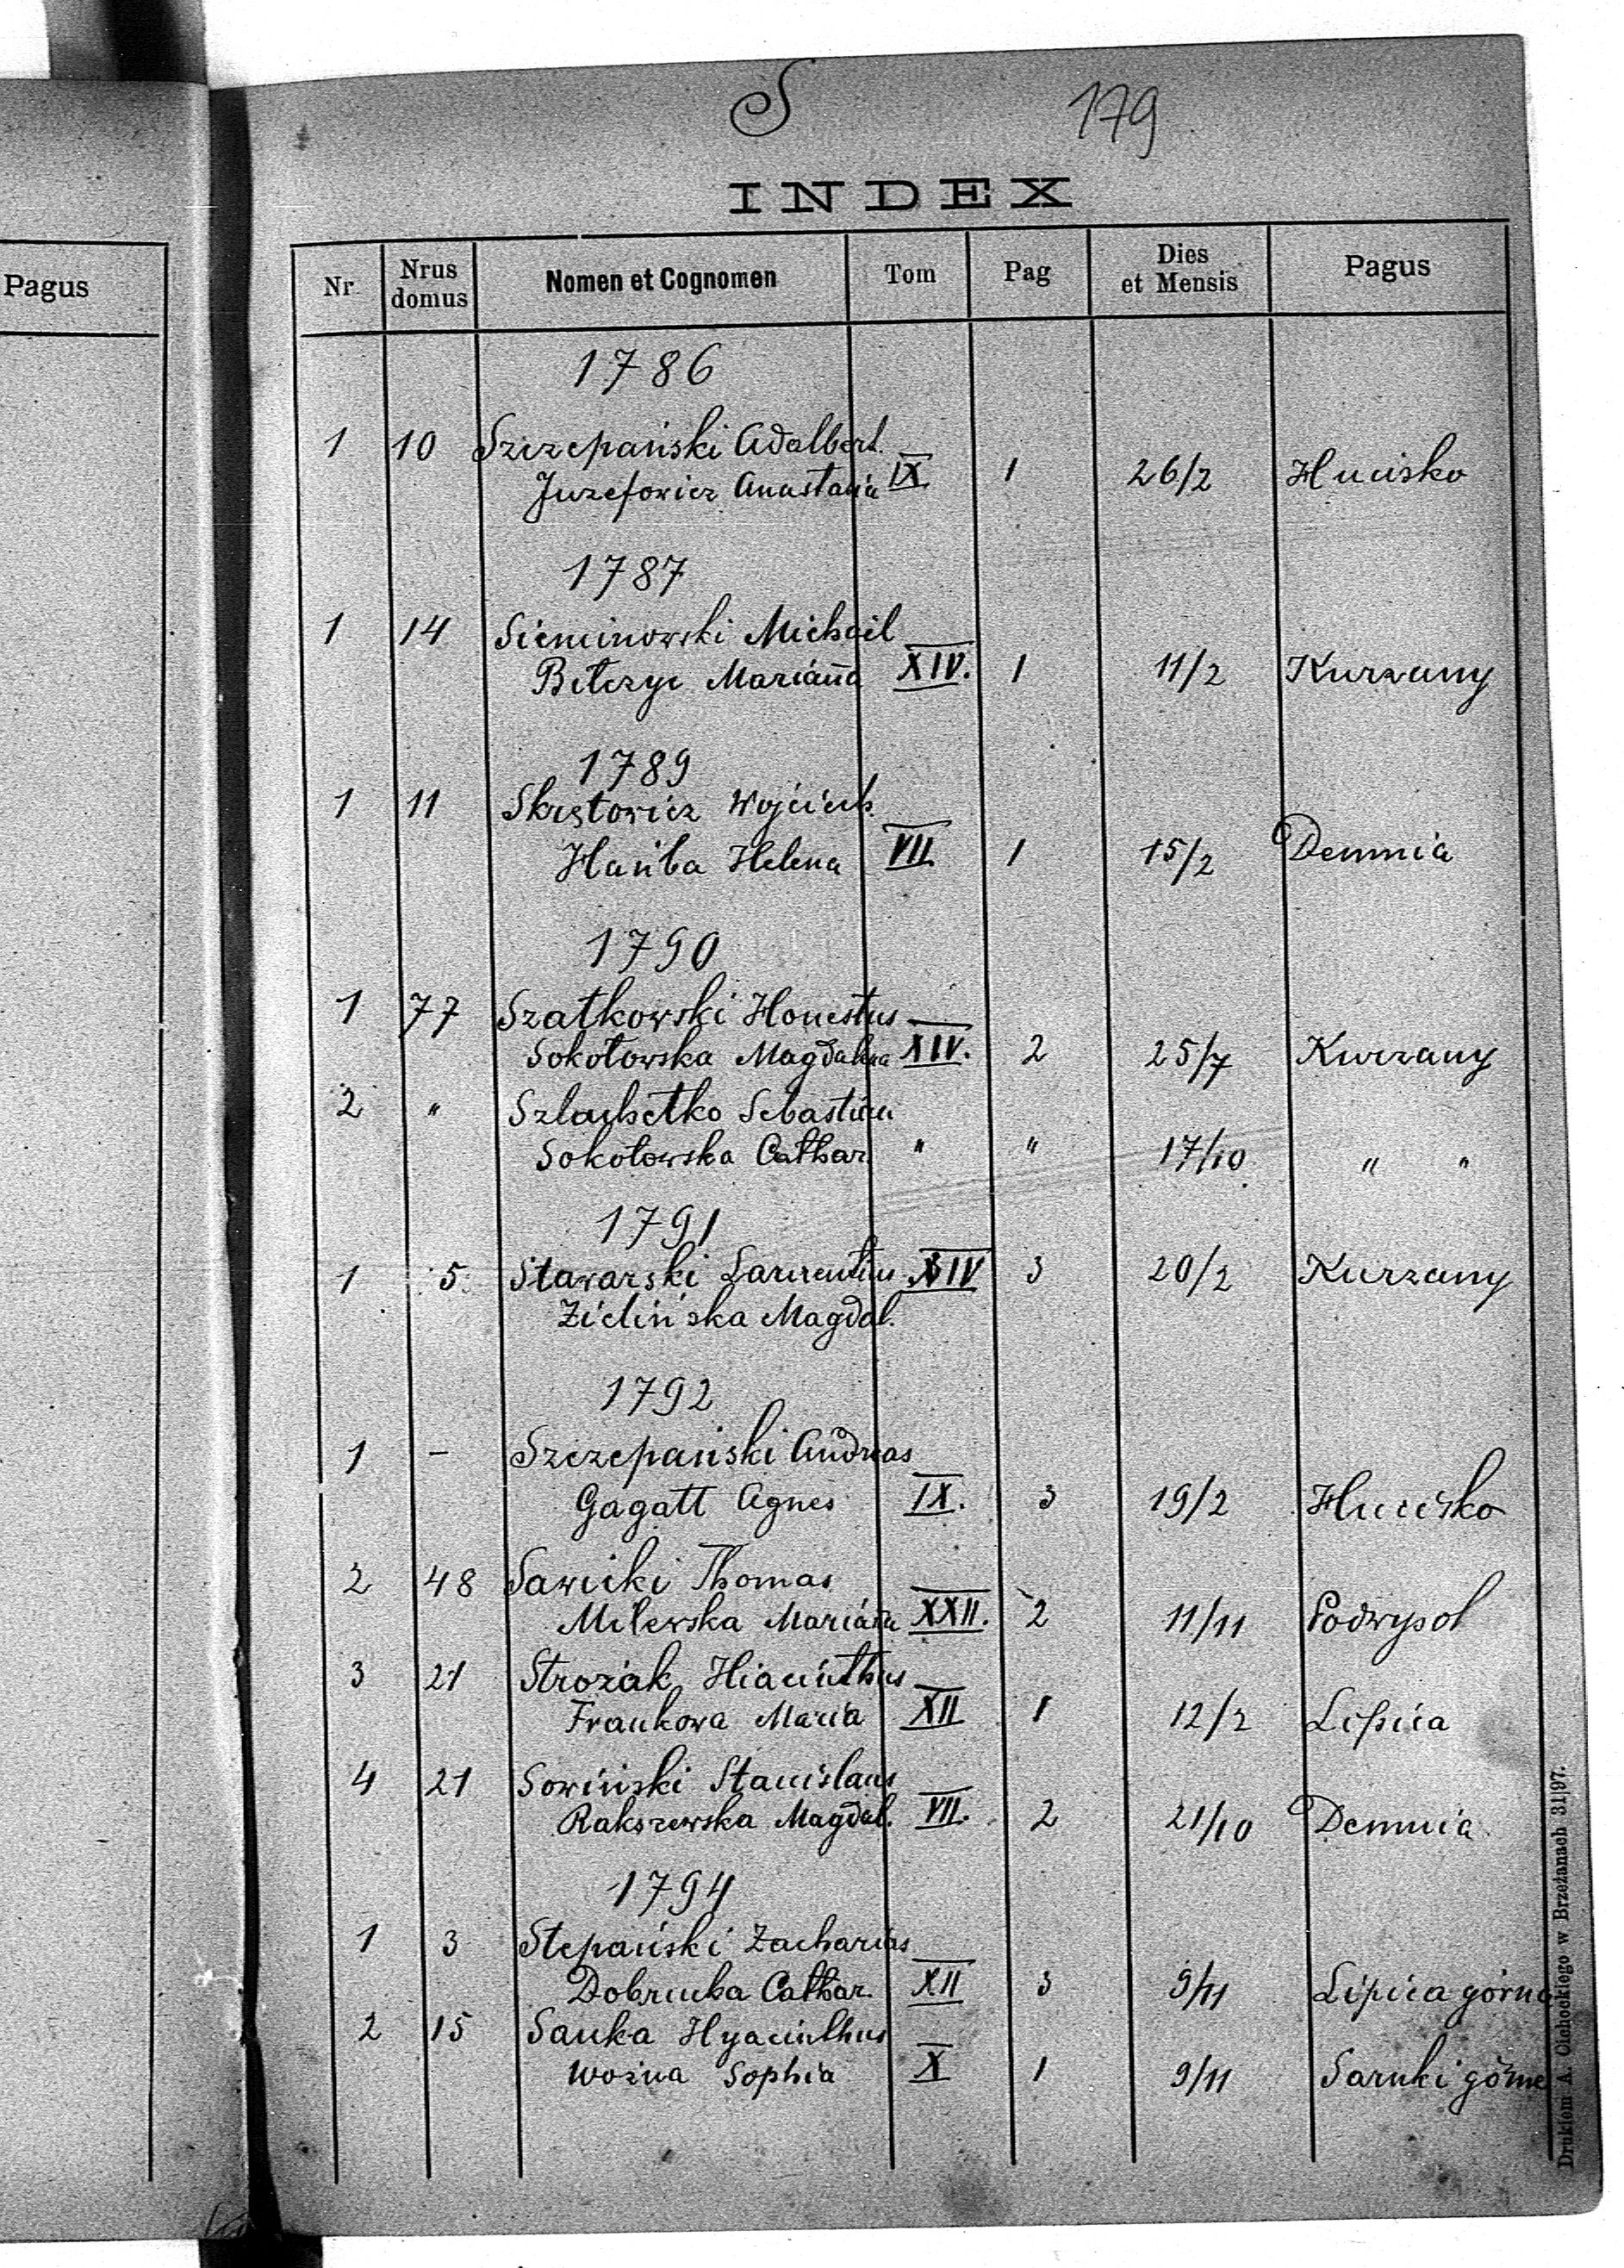 S 179
INDEX
Pagus
Nr Nrus domus Nomen et Cognomen Tom Pag Dies et Mensis Pagus
1786
1 10 Szczepański Adalbert.
Juzefowicz Anastazia IX 1 26/2 Hucisko
1787
1 14 Sieminowski Michael
Bełczyc Mariana XIV. 1 11/2 Kurzany
1789
1 11 Skrętowicz Wojciech.
Hańba Helena VII 1 15/2 Demnia
1790
1 77 Szatkowski Honestus
Sokołowska Magdalena XIV. 2 25/7 Kurzany
2 " Szlachetko Sebastian
Sokołowska Cathar. " " 17/10 " "
1791
1 5 Stawarski Laurentius XIV 3 20/2 Kurzany
Zielińska Magdal.
1792
1 – Szczepański Andreas
Gagatt Agnes IX. 3 19/2 Hucisko
2 48 Sawicki Thomas
Milewska Mariana XXII. 2 11/11 Podwysok
3 21 Strożak Hiacinthus
Frankowa Maria XII 1 12/2 Lipica
4 21 Sowiński Stanislaus
Rakszewska Magdal. VII. 2 21/10 Demnia
1794
1 3 Stepański Zacharias
Dobrucka Cathar. XII 3 9/11 Lipica górna
2 15 Sanka Hyacinthus
Woźna Sophia X 1 9/11 Sarnki górne
Drukiem A. Olchockiego w Brzeżanach 31|97.